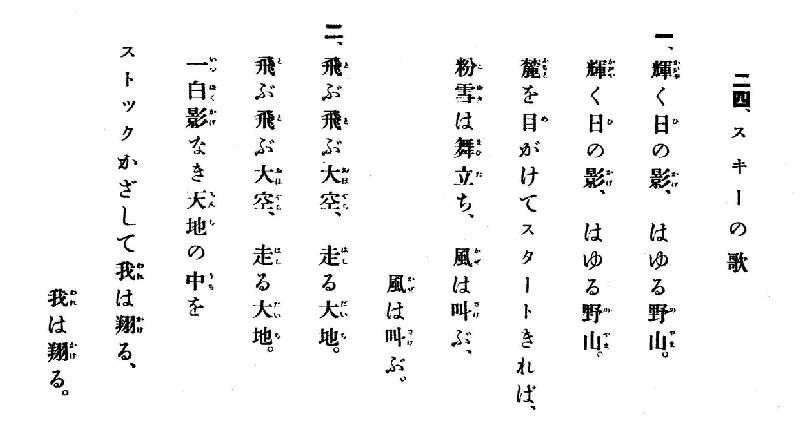 二四、スキーの歌
一、輝く日の影、はゆる野山。
輝く日の影、はゆる野山。
麓を目がけてスタートきれば、
粉雪は舞立ち、風は叫ぶ、
風は叫ぶ。
二、飛ぶ飛ぶ大空、走る大地。
飛ぶ飛ぶ大空、走る大地。
一白影なき天地の中を
ストックかざして我は翔る、
我は翔る。